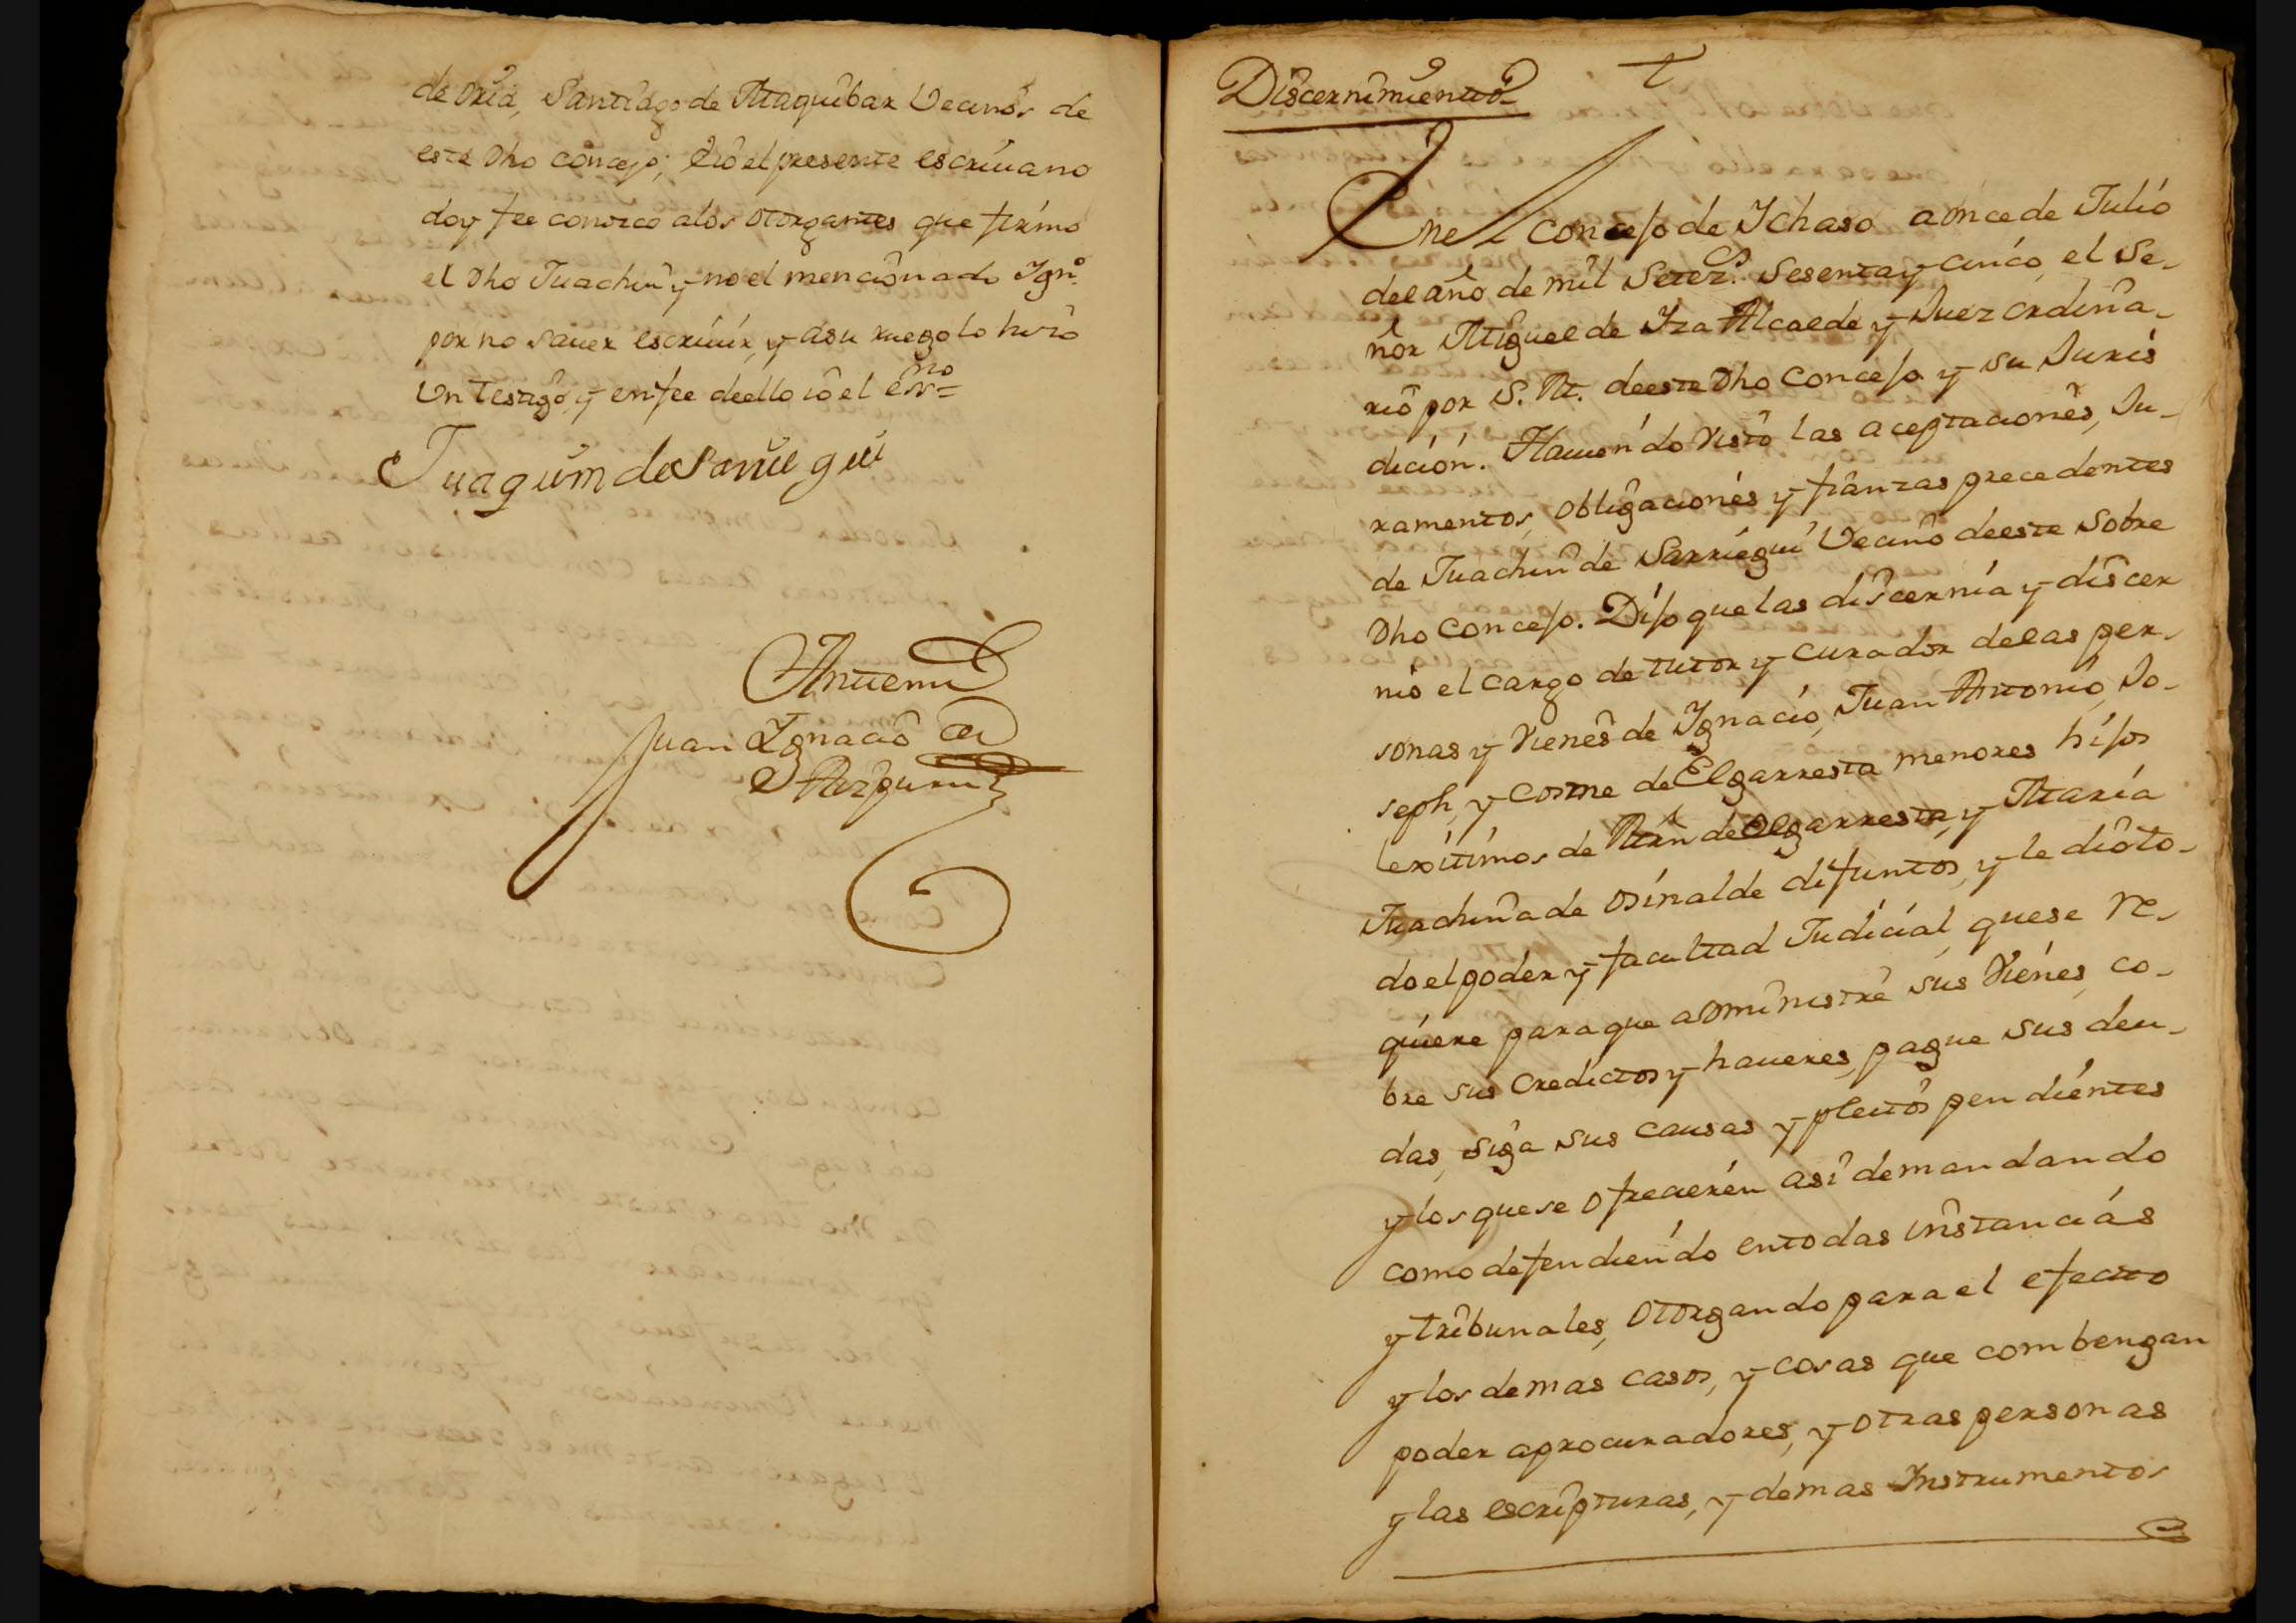 de Oria, Santiago de Maquibar Vecinos de
este Dho concejo; è io el presente escriuano
doy fee conozco alos otorgantes que firmó
el Dho Juachin y no el mencionado Ygnº.
por no sauer escriuir, y asu ruego lo hizo
Un testigo, y enfee deello io el essno=
Juaquim de Sarriegui
Antemi
Juan Ygnacio de
Aizpuru
Discernimiento
Enel concejo de Ychaso a once de Julio
del año de mil Setezs. Sesenta y cinco, el Se-
ñor Miguel de Yza Alcalde y Juez ordina-
rio por S. M. deeste Dho Concejo y su Juris
dición. Hauiendo Visto las aceptaciones, Ju-
ramentos, obligaciones y fianzas precedentes
de Juachin de Sarriegui Vecino deeste Sobre
Dho Concejo. Dijo que las discernia y discer
nió el cargo de tutor y curador delas per-
sonas y Vienes de Ygnacio, Juan Antonio, Jo-
seph, y Cosme de Elgarresta menores hijos
lexitimos de Mrn de elgarresta, y Maria
Juachina de Osinalde difuntos, y le dió to-
do el poder y facultad Judicial, que se re-
quiere para que administre sus Vienes, co-
bre sus Credictos y haueres, pague sus deu-
das, siga sus causas y pleitos pendientes
y los que se ofrecieren asi demandando
como defendiendo entodas instancias
y tribunales, otorgando para el efecto
y los demas casos, y cosas que combengan
poder aprocuradores, y otras personas
y las escripturas, y demas Instrumentos